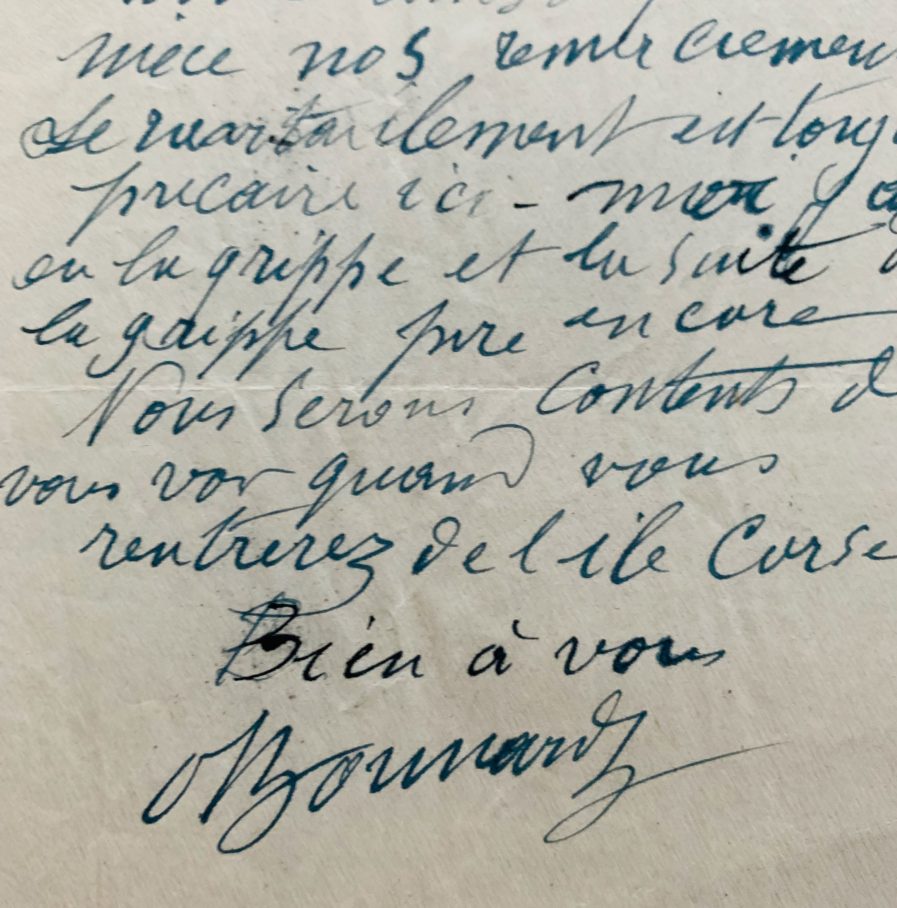 nièce nos remerciemen
Le ravitaillement est touj
précaire ici - moi j'a
eu la grippe et la suite d
la grippe pire encore
Nous serons contents d
vous voir quand vous
rentrerez de l'ile Corse
Bien à vous
Bonnard